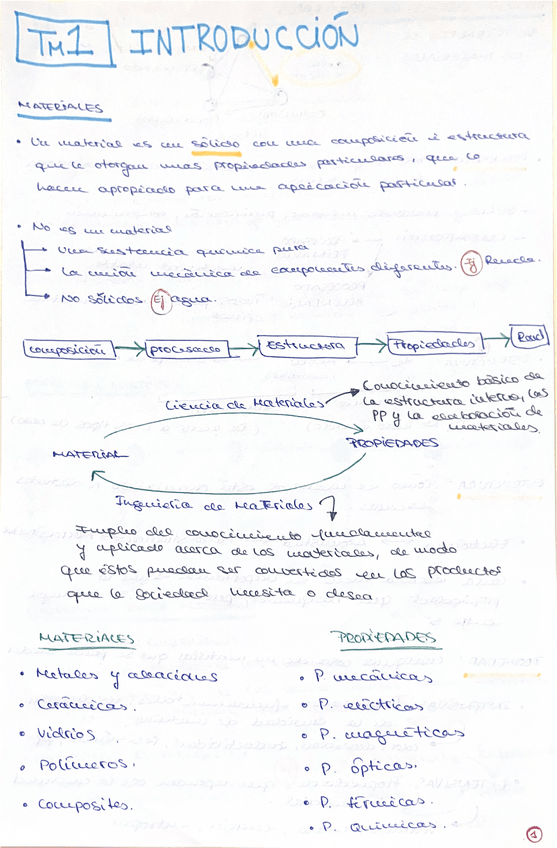 TM1 INTRODUCCIÓN
MATERIALES
• Un material es un sólido con una composición i estructura
que le otorgan unas propiedades particulares, que lo
hacen apropiado para una aplicación particular.
• No es un material
Una sustancia química pura
La unión mecánica de componentes diferentes. Ej
No sólidos. Ej agua.
composición → procesado → Estructura → Propiedades →
Ciencia de Materiales → Conocimiento básico de
la estructura interna, las
PP y la elaboración de
materiales.
MATERIAL
PROPIEDADES
Ingeniería de Materiales
Empleo del conocimiento fundamental
y aplicado acerca de los materiales, de modo
que éstos puedan ser convertidos en los productos
que la sociedad necesita o desea
MATERIALES
• Metales y aleaciones
• Cerámicas.
• Vidrios
• Polímeros.
• Composites.
PROPIEDADES
• P. mecánicas
• P. eléctricas
• P. magnéticas
• P. ópticas.
• P. térmicas.
• P. químicas.
1